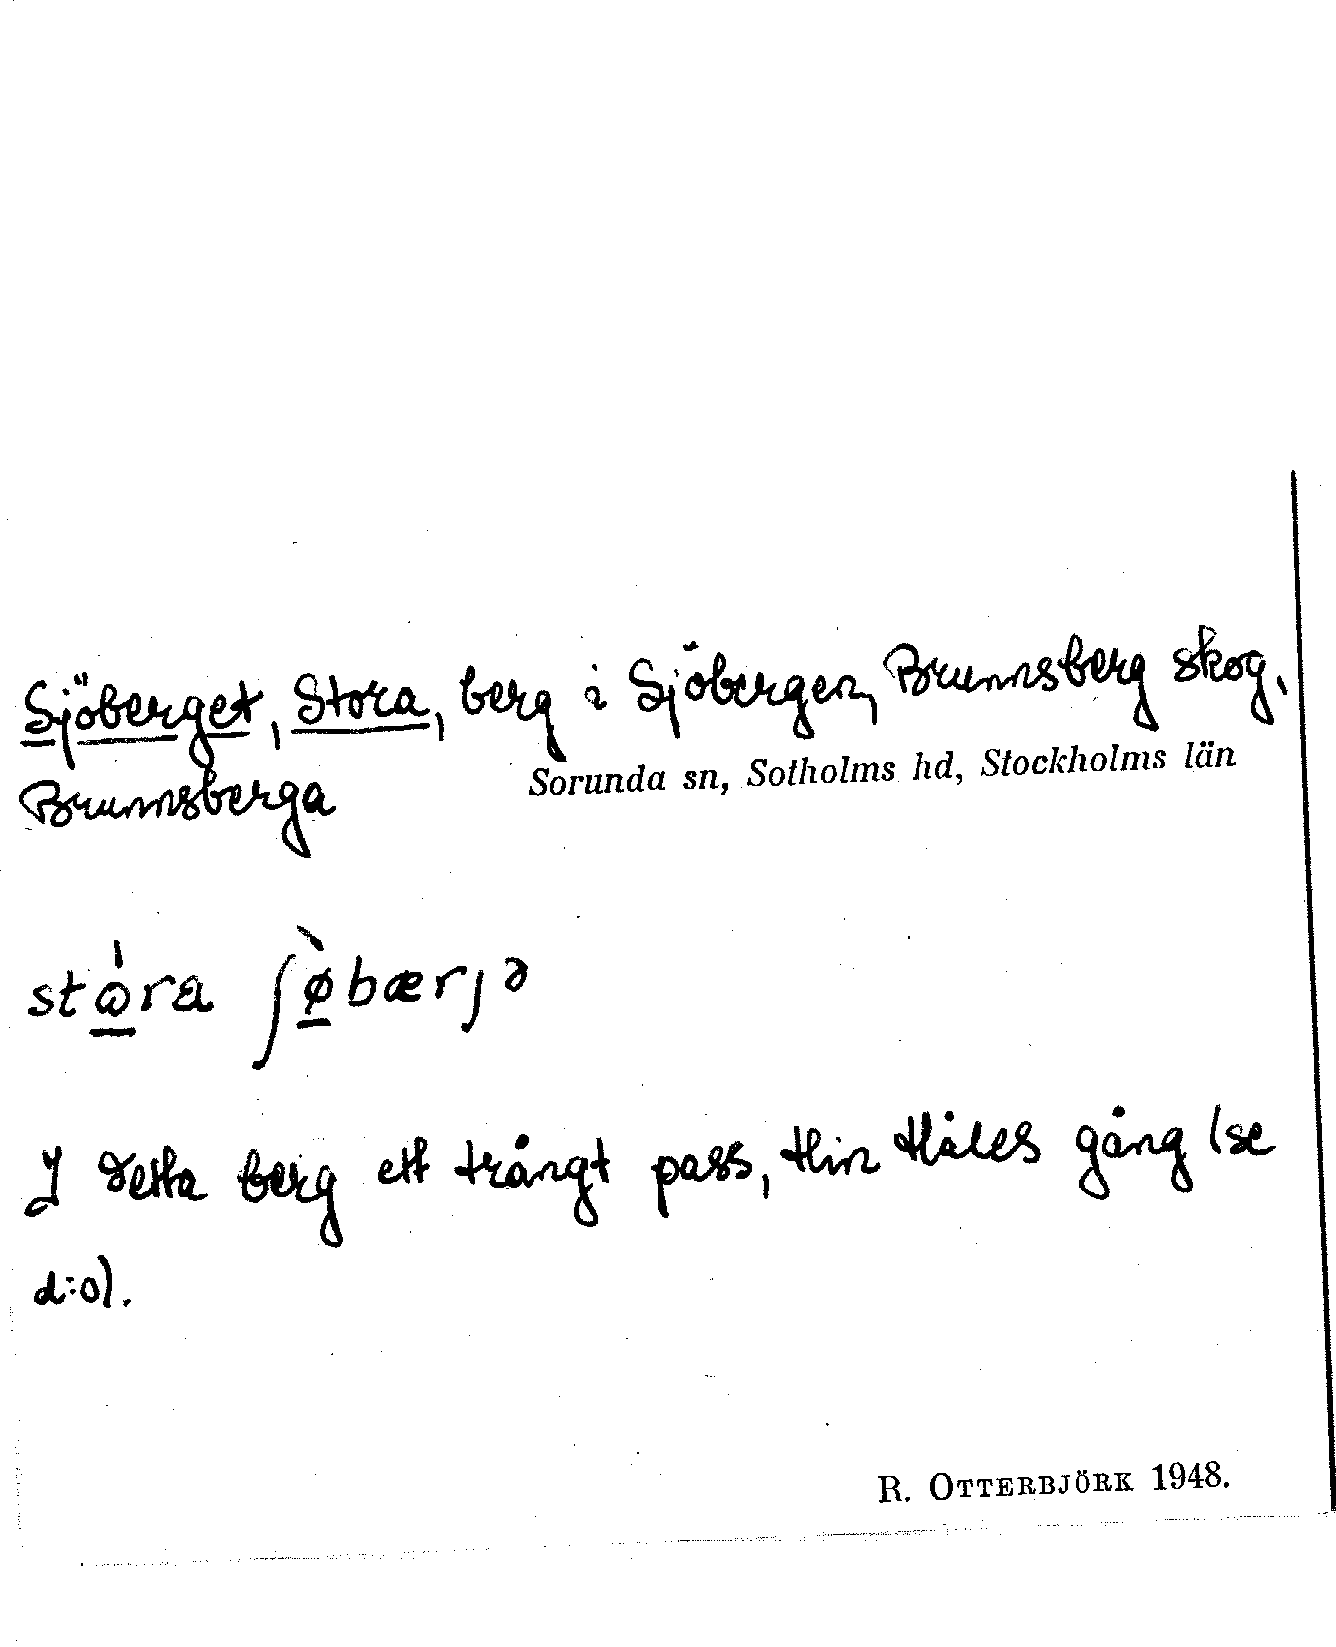 Sjöberget, Stora, berg i Sjöbergen, Brunnsberg skog,
Brunnsberga
Sorunda sn, Sotholms hd, Stockholms län
stɷ̀ra ʃø̀bærȷə
I detta berg ett trångt pass, Hin Håles gång (se
d:o).
R. OTTERBJÖRK 1948.